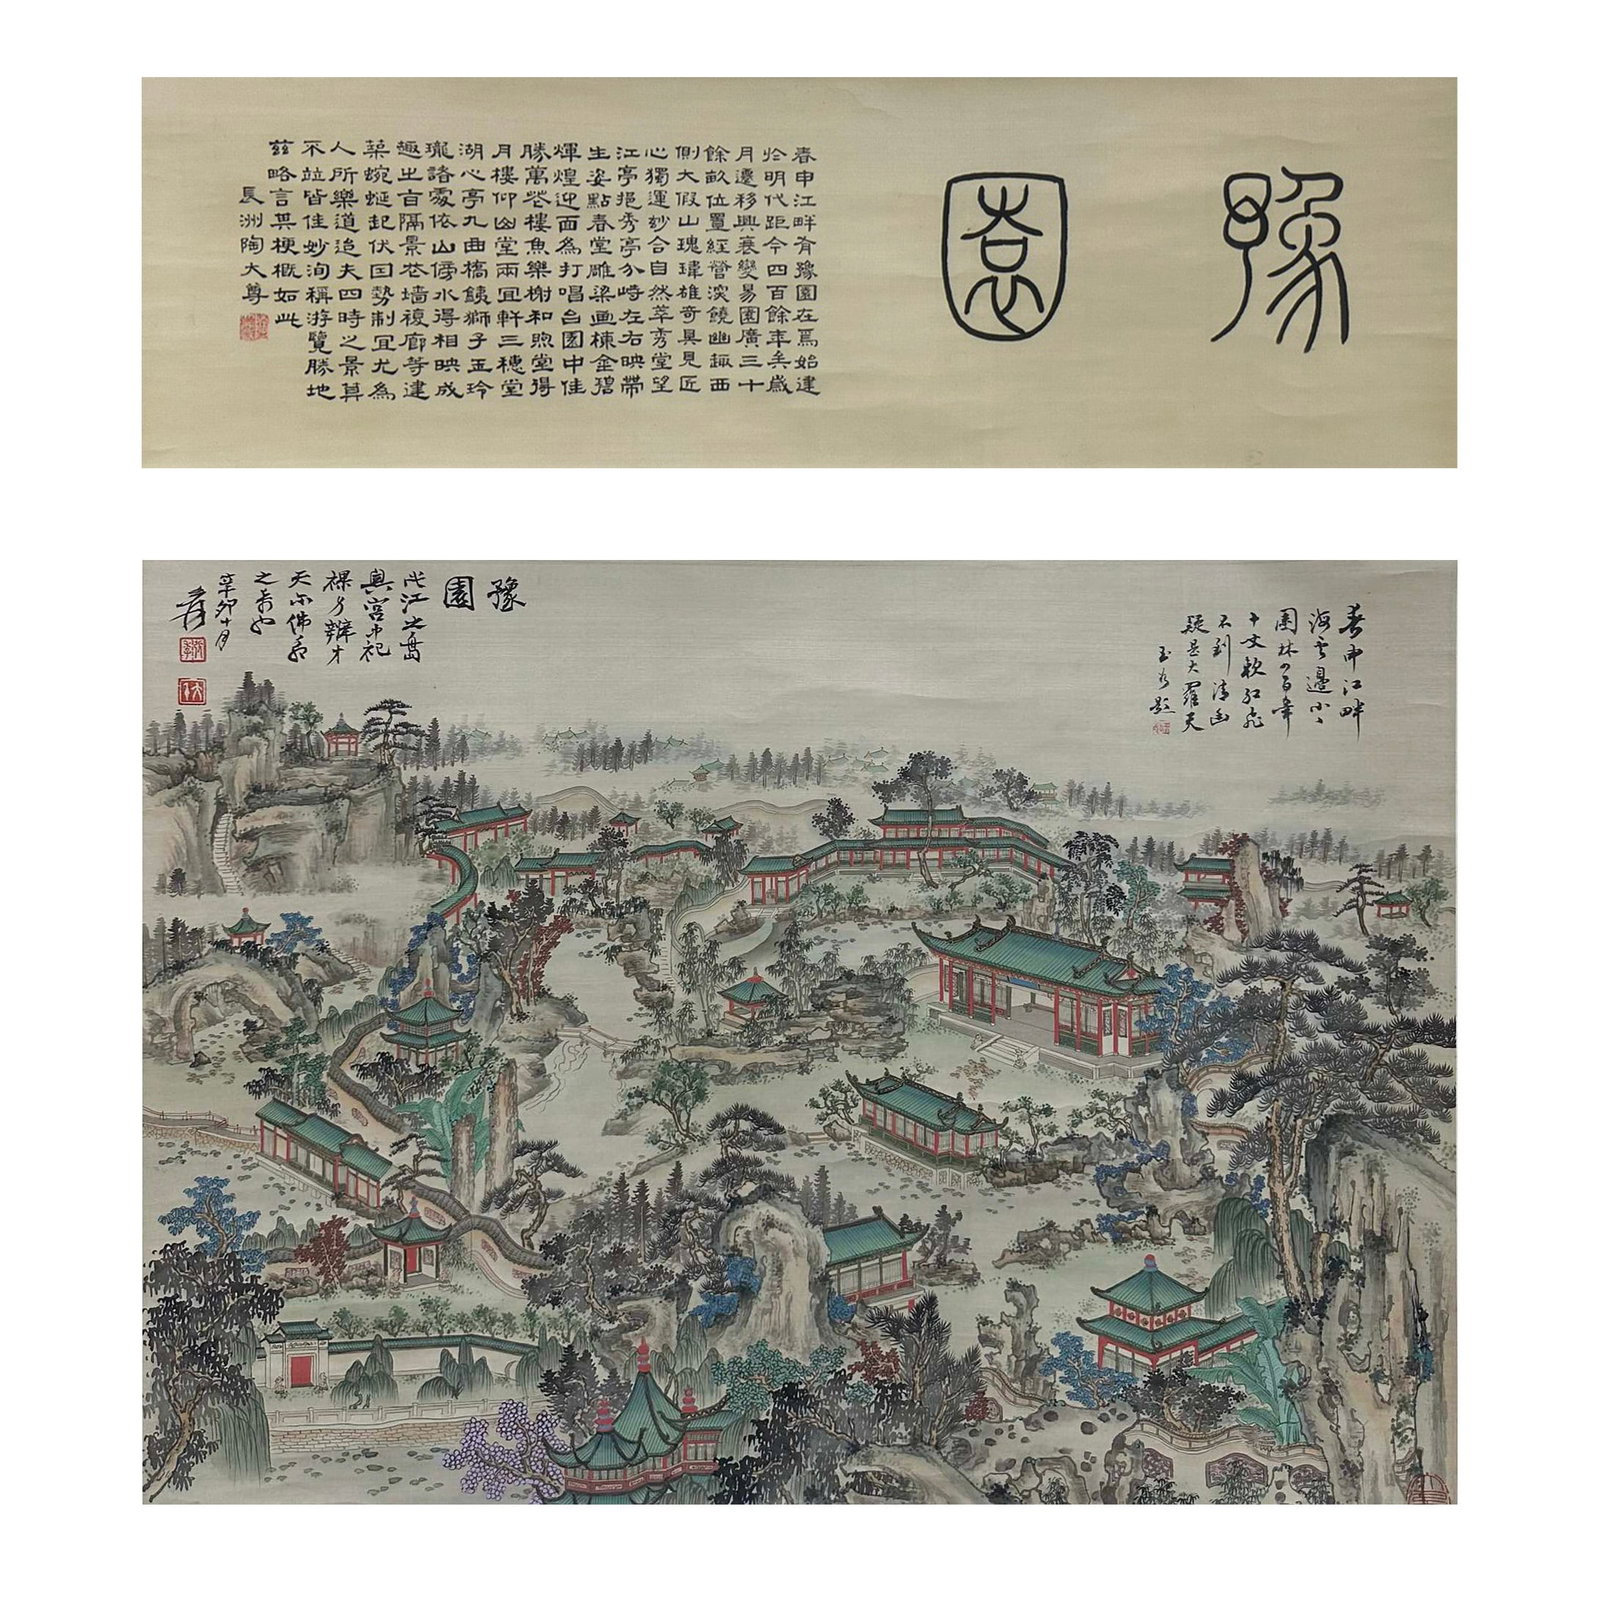 豫園
春申江畔有豫園在焉始建
於明代距今四百餘年矣歲
月遷移興衰變易園廣三十
餘畝位置經營深饒幽趣西
側大假山瑰瑋雄奇具見匠
心獨運妙合自然萃秀堂望
江亭挹秀亭分峙左右映帶
生姿點春堂雕梁畫棟金碧
輝煌迎面為打唱台園中佳
勝萬花樓魚樂榭和煦堂得
月樓仰山堂兩宜軒三穗堂
湖心亭九曲橋銕獅子玉玲
瓏諸處依山傍水得相映成
趣之百隔景花墻複廊等建
築蜿蜒起伏因勢制宜尤為
人所樂道迨夫四時之景莫
不竝皆佳妙洵稱游覽勝地
茲略言其梗概如此
長洲陶大尊
春申江畔
海雲邊小小
園林四百年
十丈軟紅飛
不到清幽
疑是大羅天
題
豫園
江之
宮中祀
裸多辨才
天亦佛
之意也
辛卯十月
爰